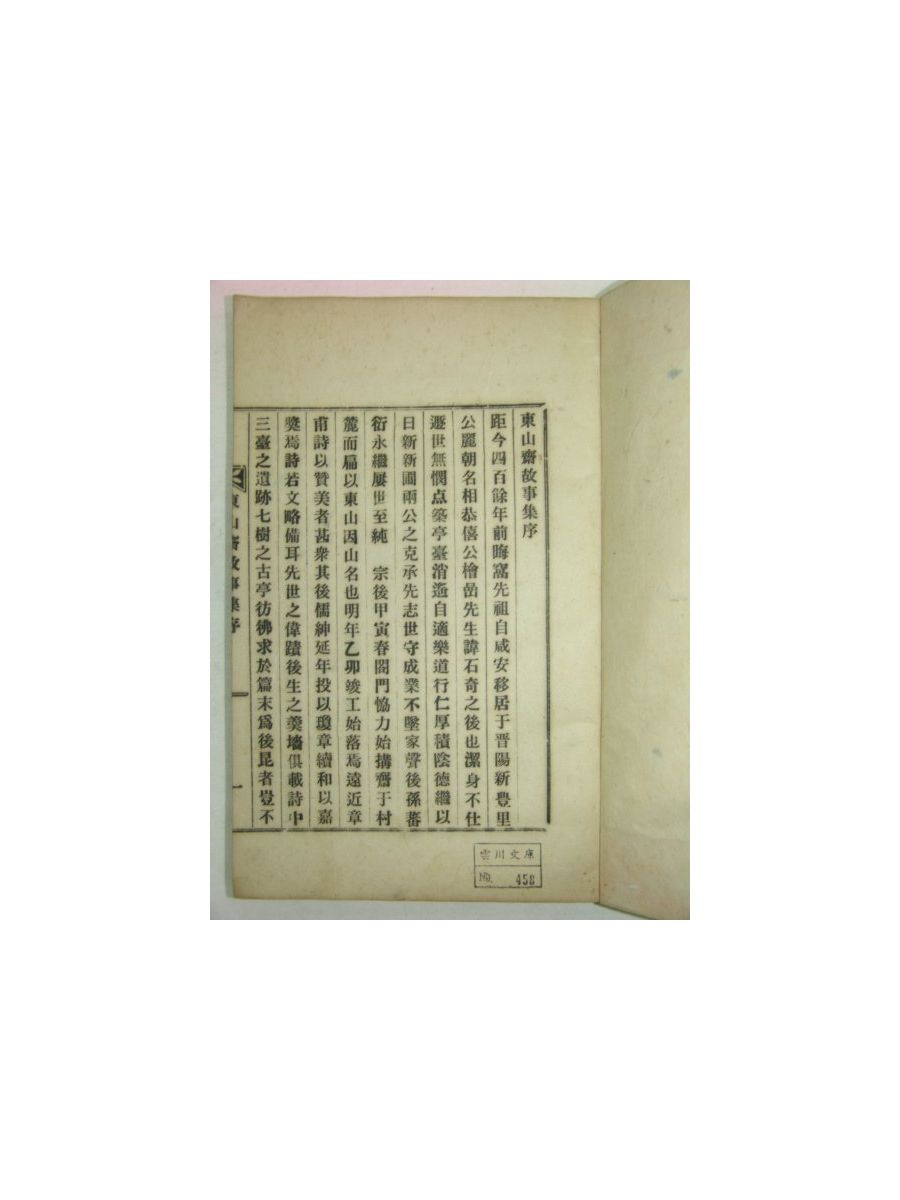 東山齋故事集序
距今四百餘年前晦窩先祖自咸安移居于晋陽新豊里
公麗朝名相恭僖公檜嵒先生諱石奇之後也潔身不仕
遯世無憫点築亭臺消遙自適樂道行仁厚積陰德繼以
日新新圃兩公之克承先志世守成業不墜家聲後孫蕃
衍永繼屢世至純 宗後甲寅春闔門恊力始搆齋于村
麓而扁以東山因山名也明年乙卯竣工始落焉遠近章
甫詩以贊美者甚衆其後儒紳延年投以瓊章續和以嘉
奬焉詩若文略備耳先世之偉蹟後生之羹墻俱載詩中
三臺之遺跡七樹之古亭彷彿求於篇末爲後昆者豈不
東山齋故事集序 一
雲川文庫
NO. 458